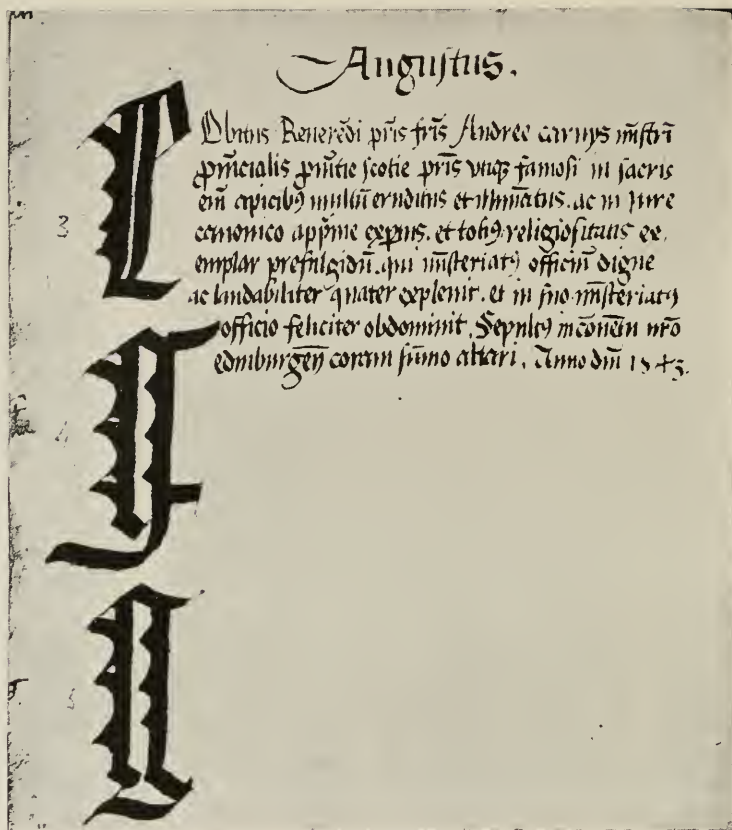 Augustus.
Obitus Reuerēdi pr̄is fr̄is Andree cairnys m̄istri
ꝓuīcialis ꝓuītie scotie pr̄is vtiqꝫ famosi in sacris
eīn apicibꝰ multū eruditus et illumīatus. ac in Jure
canonico appͥme exptus. et totiꝰ religiositatis ex,
emplar prefulgidū. qui mīsteriatꝰ officiū digne
ac laudabiliter quater expleuit. et in suo mīsteriatꝰ
officio feliciter obdormiuit. Sepultꝰ in cōuētu nr̄o
edinburgeñ coram sūmo altari. Anno dn̄i 1543.
3
4
5